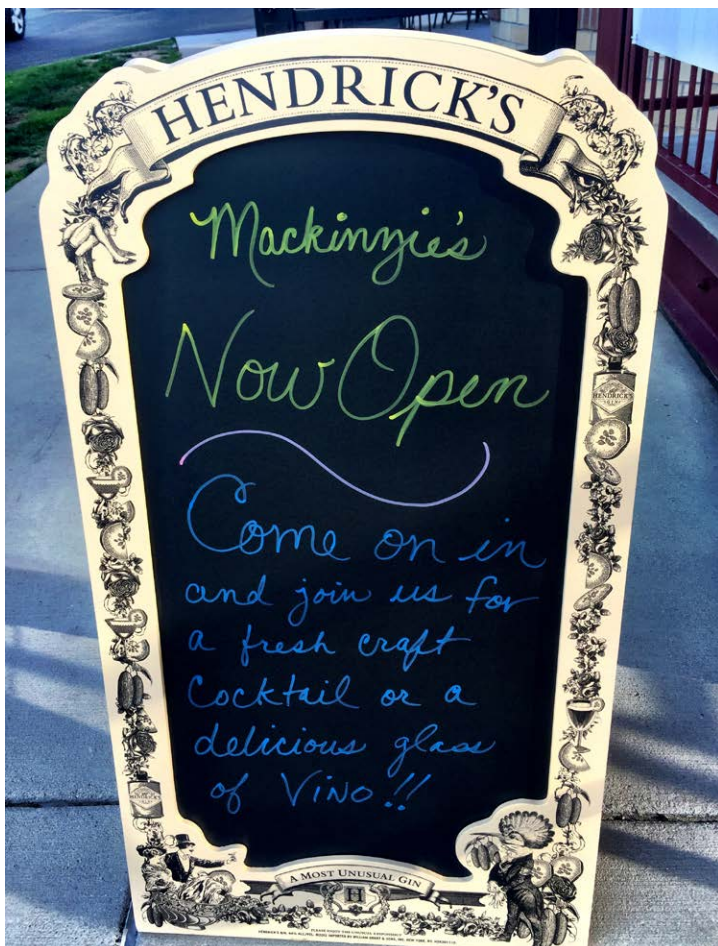 HENDRICK'S
Mackinzie's
Now Open
Come on in
and join us for
a fresh craft
Cocktail or a
delicious glass
of ViNO!!
HENDRICK'S
A MOST UNUSUAL GIN
H